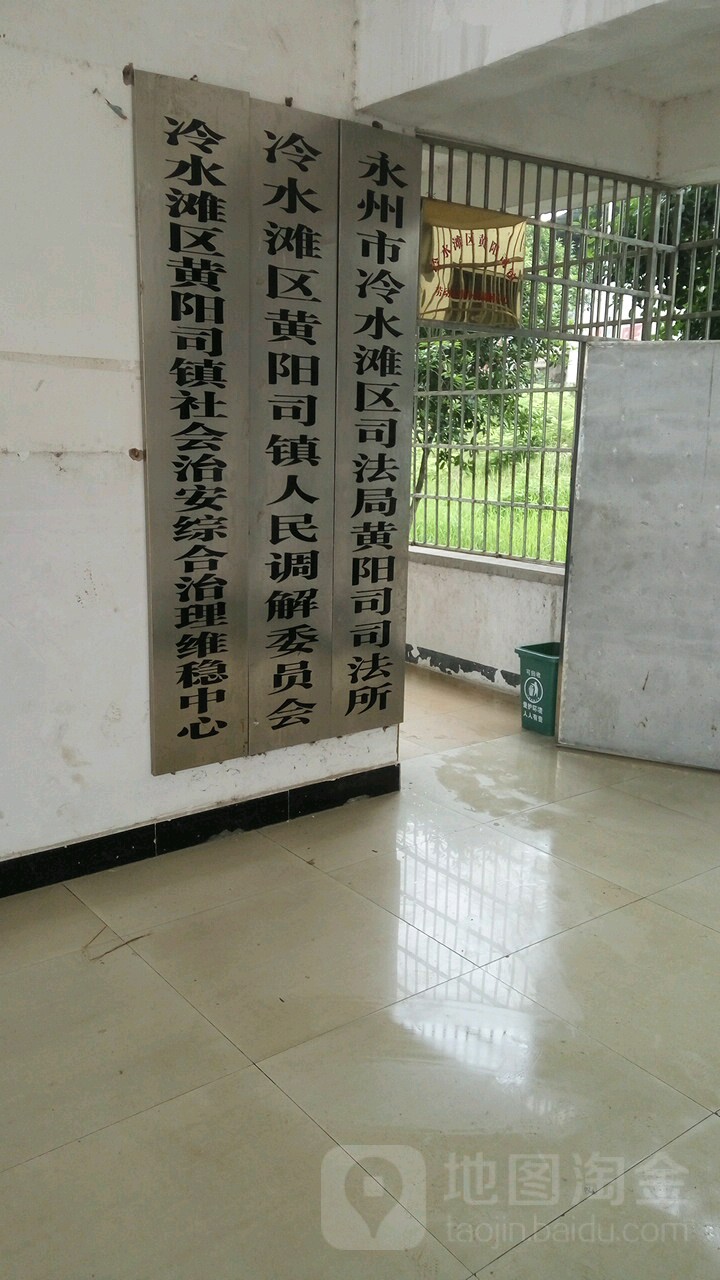 冷水滩区黄阳司镇社会治安综合治理维稳中心
冷水滩区黄阳司镇人民调解委员会
永州市冷水滩区司法局黄阳司司法所
冷水滩区黄阳司
可回收
保护环境
人人有责
地图淘金
taojin.baidu.com